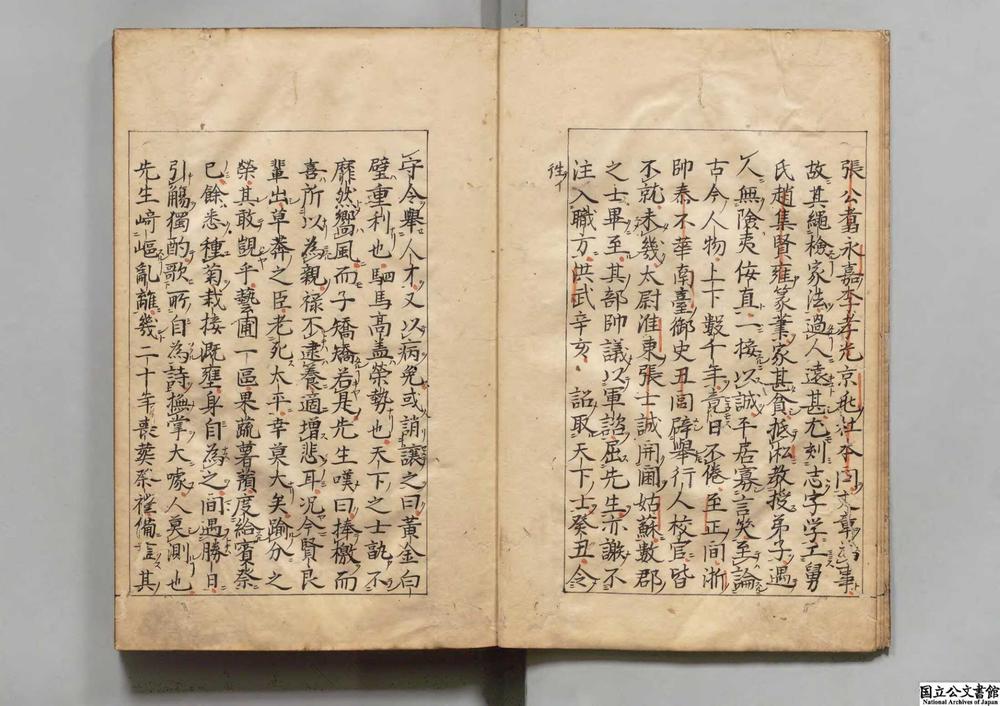 張公翥永嘉李孝光京兆杜本同太章事
故其繩檢家法過人遠甚尤刻志字学工舅
氏趙集賢雍篆業家甚貧抵淞教授弟子遇
人無險夷侫直一接以誠平居寡言笑至論
古今人物上下數千年竟日不倦至正间浙
帥泰不華南臺御史丑閭辟舉行人校官皆
不就未幾太尉淮東張士誠開閫姑蘇數郡
之士畢至其部帥議以軍諮屈先生亦謝不
注入職方洪武辛亥詔取天下士癸丑令
徃イ
守令舉人才又以病免或誚讓之曰黃金白
璧重利也駟馬高盖榮勢也天下之士孰不
靡然嚮風而子矯矯若是先生嘆曰捧檄而
喜所以為親禄不逮養適增悲耳况今賢良
輩出草莽之臣老死太平幸莫大矣踰分之
榮其敢覬乎藝圃一區果蔬薯蕷度給賓祭
已餘悉種菊栽接溉壅身自為之间遇勝日
引觴獨酌歌所自為詩撫掌大噱人莫測也
先生﨑嶇亂離幾二十年喪葬祭禮備誌其
国立公文書館
National Archives of Japan